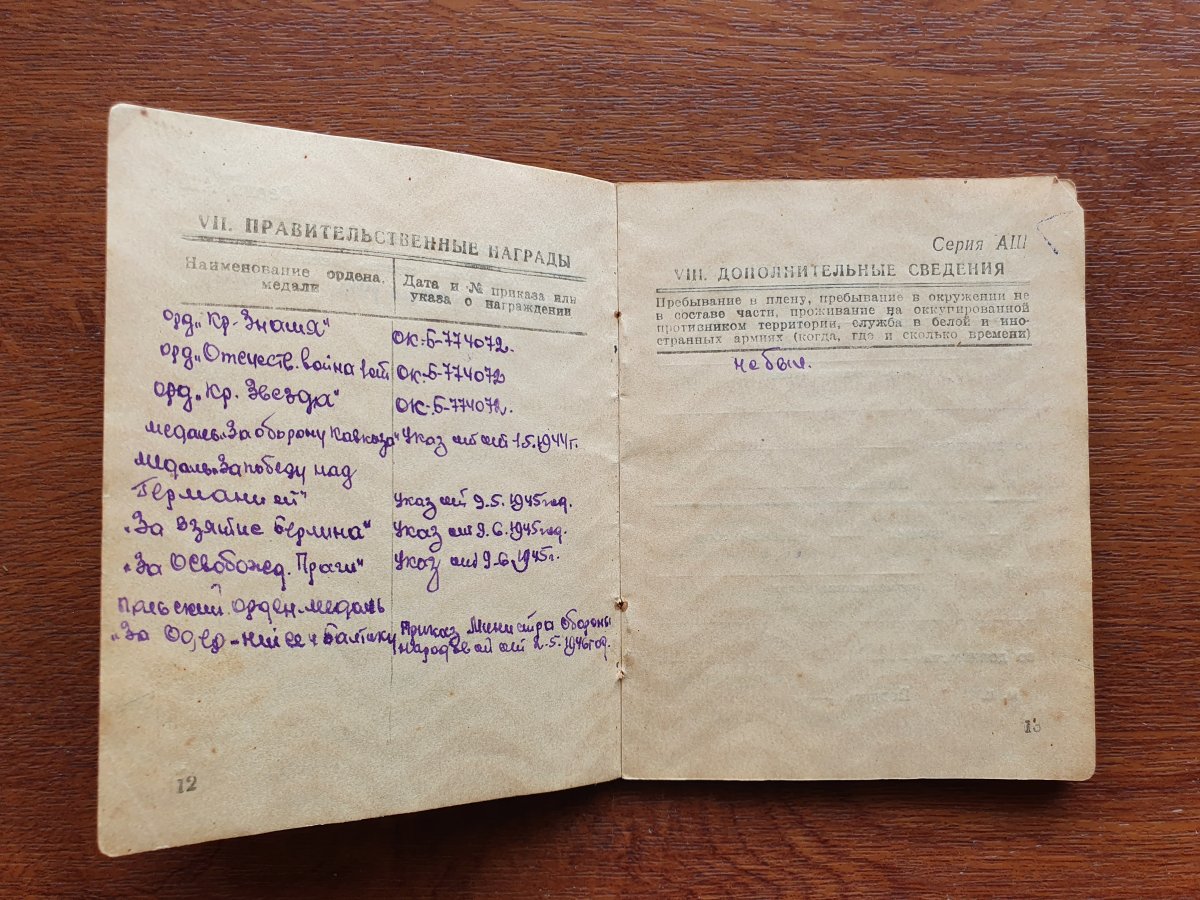 VII. ПРАВИТЕЛЬСТВЕННЫЕ НАГРАДЫ
Наименование ордена, медали
Дата и № приказа или указа о награждении
орд. „Кр. Знамя" ОК-Б-774072.
орд. „Отечеств. война 1 ст ОК-Б-774072
орд. „Кр. Звезда" ОК-Б-774072.
медаль „За оборону Кавказа" Указ от 1.5.1944г.
медаль „За победу над
Германией" Указ от 9.5.1945 год.
„За взятие Берлина" Указ от 9.6.1945 год.
„За Освобожд. Праги" Указ от 9.6.1945г.
польский орден-медаль
„За Балтику Приказ Министра обороны
от 2.5.1946 год.
12
Серия АШ
VIII. ДОПОЛНИТЕЛЬНЫЕ СВЕДЕНИЯ
Пребывание в плену, пребывание в окружении не
в составе части, проживание на оккупированной
противником территории, служба в белой и ино-
странных армиях (когда, где и сколько времени)
не был.
13